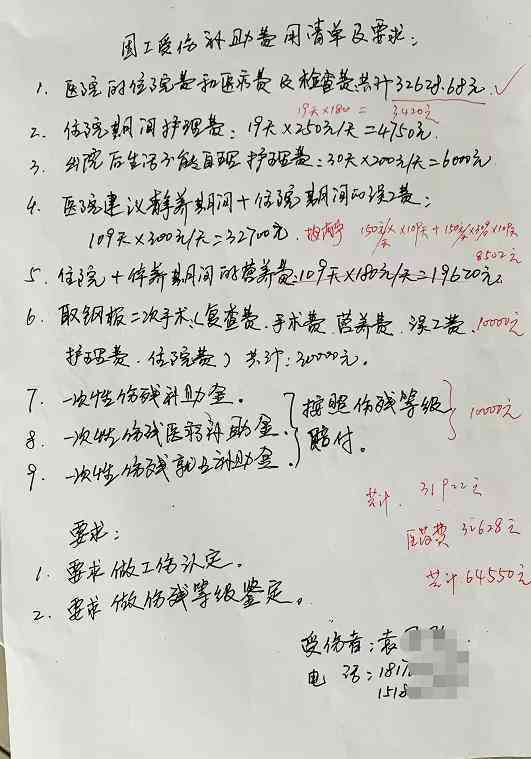 因工受伤补助费用清单及要求:
1. 医院的住院费和医疗费及检查费共计32628.68元. ✓
19天×180 = 3420元
2. 住院期间护理费: 19天×250元/天=4750元.
3. 出院后生活不能自理护理费: 30天×200元/天=6000元
4. 医院建议静养期间+住院期间的误工费:
109天×300元/天=32700元.
8502元
5. 住院+休养期间的营养费: 109天×180元/天=19620元.
6. 取钢板二次手术(复查费.手术费.营养费.误工费. 10000元
护理费.住院费)共计:30000元.
7. 一次性伤残补助金.
8. 一次性伤残医疗补助金. 按照伤残等级 10000元
赔付.
9. 一次性伤残就业补助金.
共计. 31922元
医药费 32628元
共计64550元
要求:
1. 要求做工伤认定.
2. 要求做伤残等级鉴定.
受伤者: 袁
电话: 1817
1518